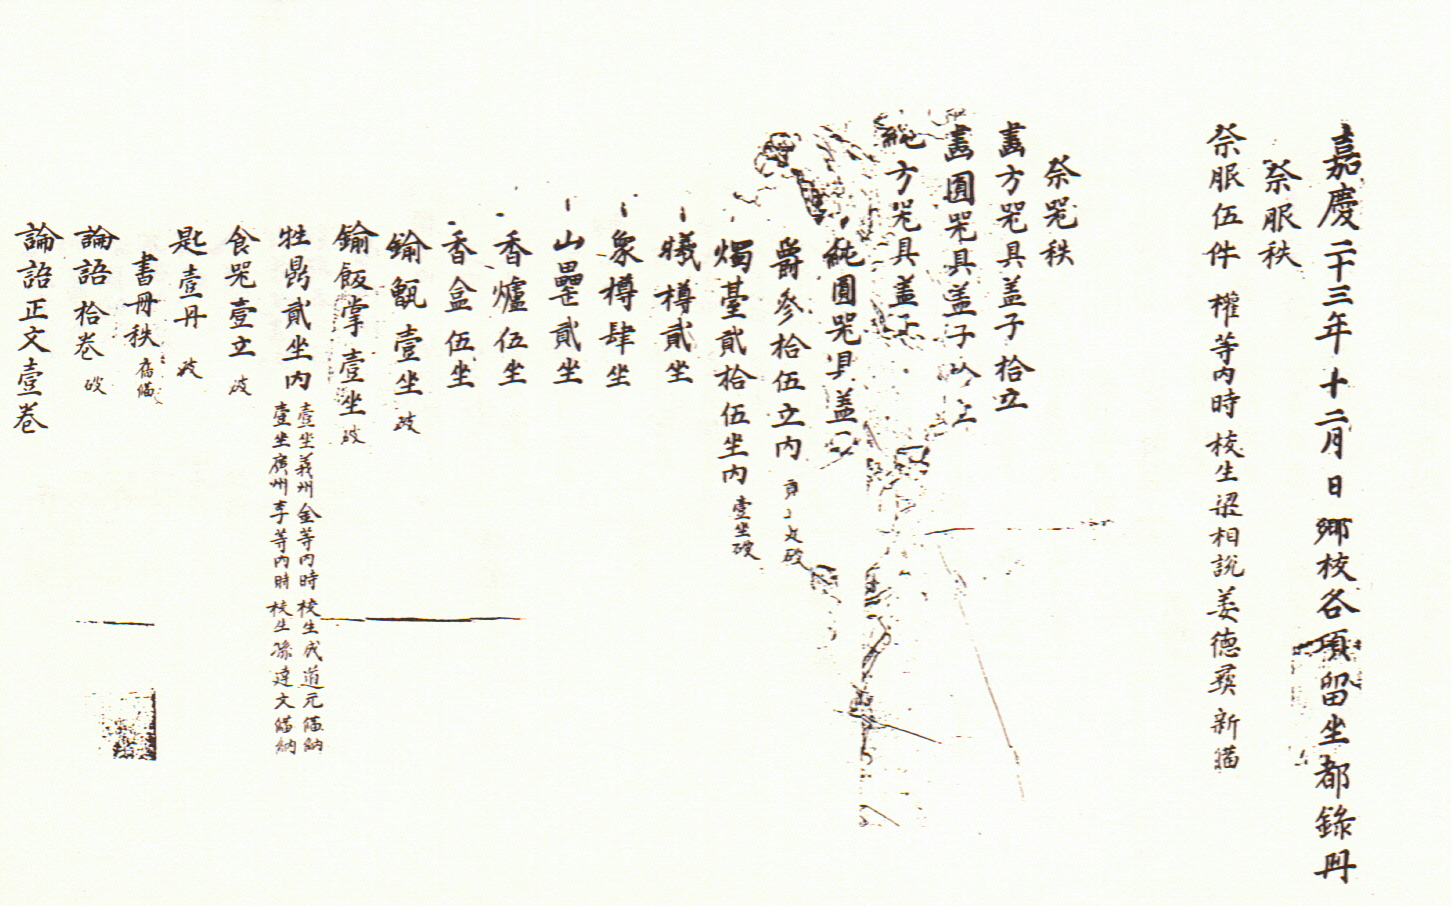 嘉慶二十三年十二月日鄉校各項留坐都錄冊
祭服秩
祭服伍件 權等內時校生梁相說姜德彛新備
祭哭秩
畵方哭具盖子拾立
畵圓哭具盖子
純方哭具盖
純圓哭具盖
爵參拾伍立內 破
燭臺貳拾伍坐內 壹坐破
犧樽貳坐
象樽肆坐
山罍貳坐
香爐伍坐
香盒伍坐
鍮甑壹坐 破
鍮飯掌壹坐 破
牲鼎貳坐內 壹坐義州金等內時校生成道元備納
壹坐廣州李等內時校生孫達文備納
食哭壹立 破
匙壹丹 破
書冊秩 舊備
論語拾卷 破
論語正文壹卷